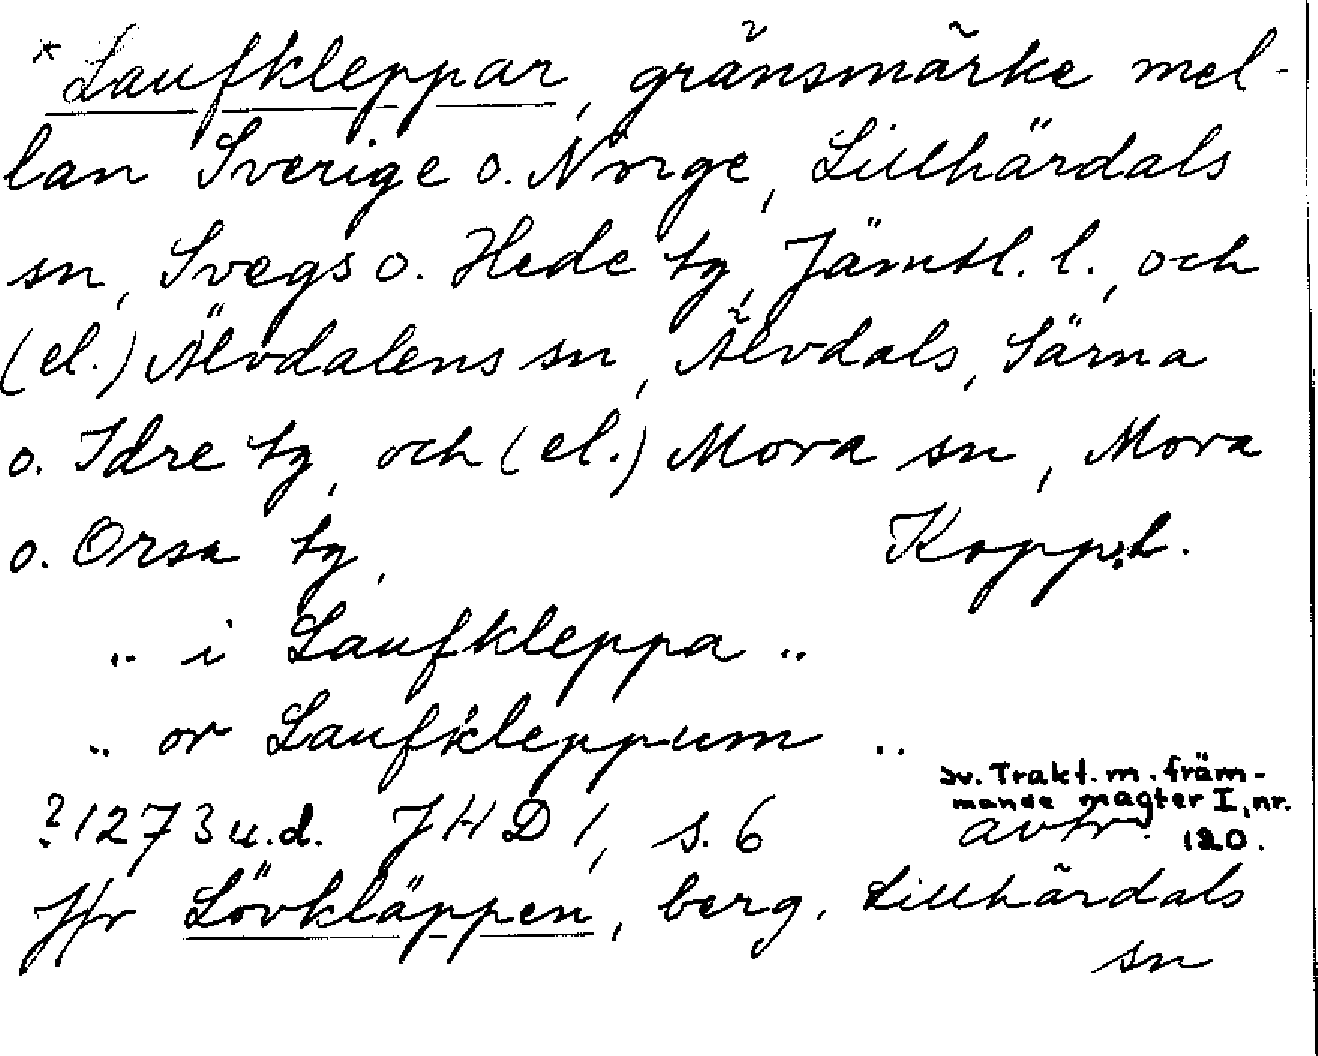 *Laufkleppar, gränsmärke mel-
lan Sverige o. Norge, Lillhärdals
sn, Svegs o. Hede tg, Jämtl. l., och
(el.) Älvdalens sn, Älvdals, Särna
o. Idre tg, och (el.) Mora sn, Mora
o. Orsa tg, Kopp.l.
.. i Laufkleppa ..
.. or Laufkleppum ..
?1273 u.d. JHD 1, s. 6 avtr.
Sv. Trakt. m. främ-
mande magter I, nr.
120.
Jfr Lövkläppen, berg, Lillhärdals
sn